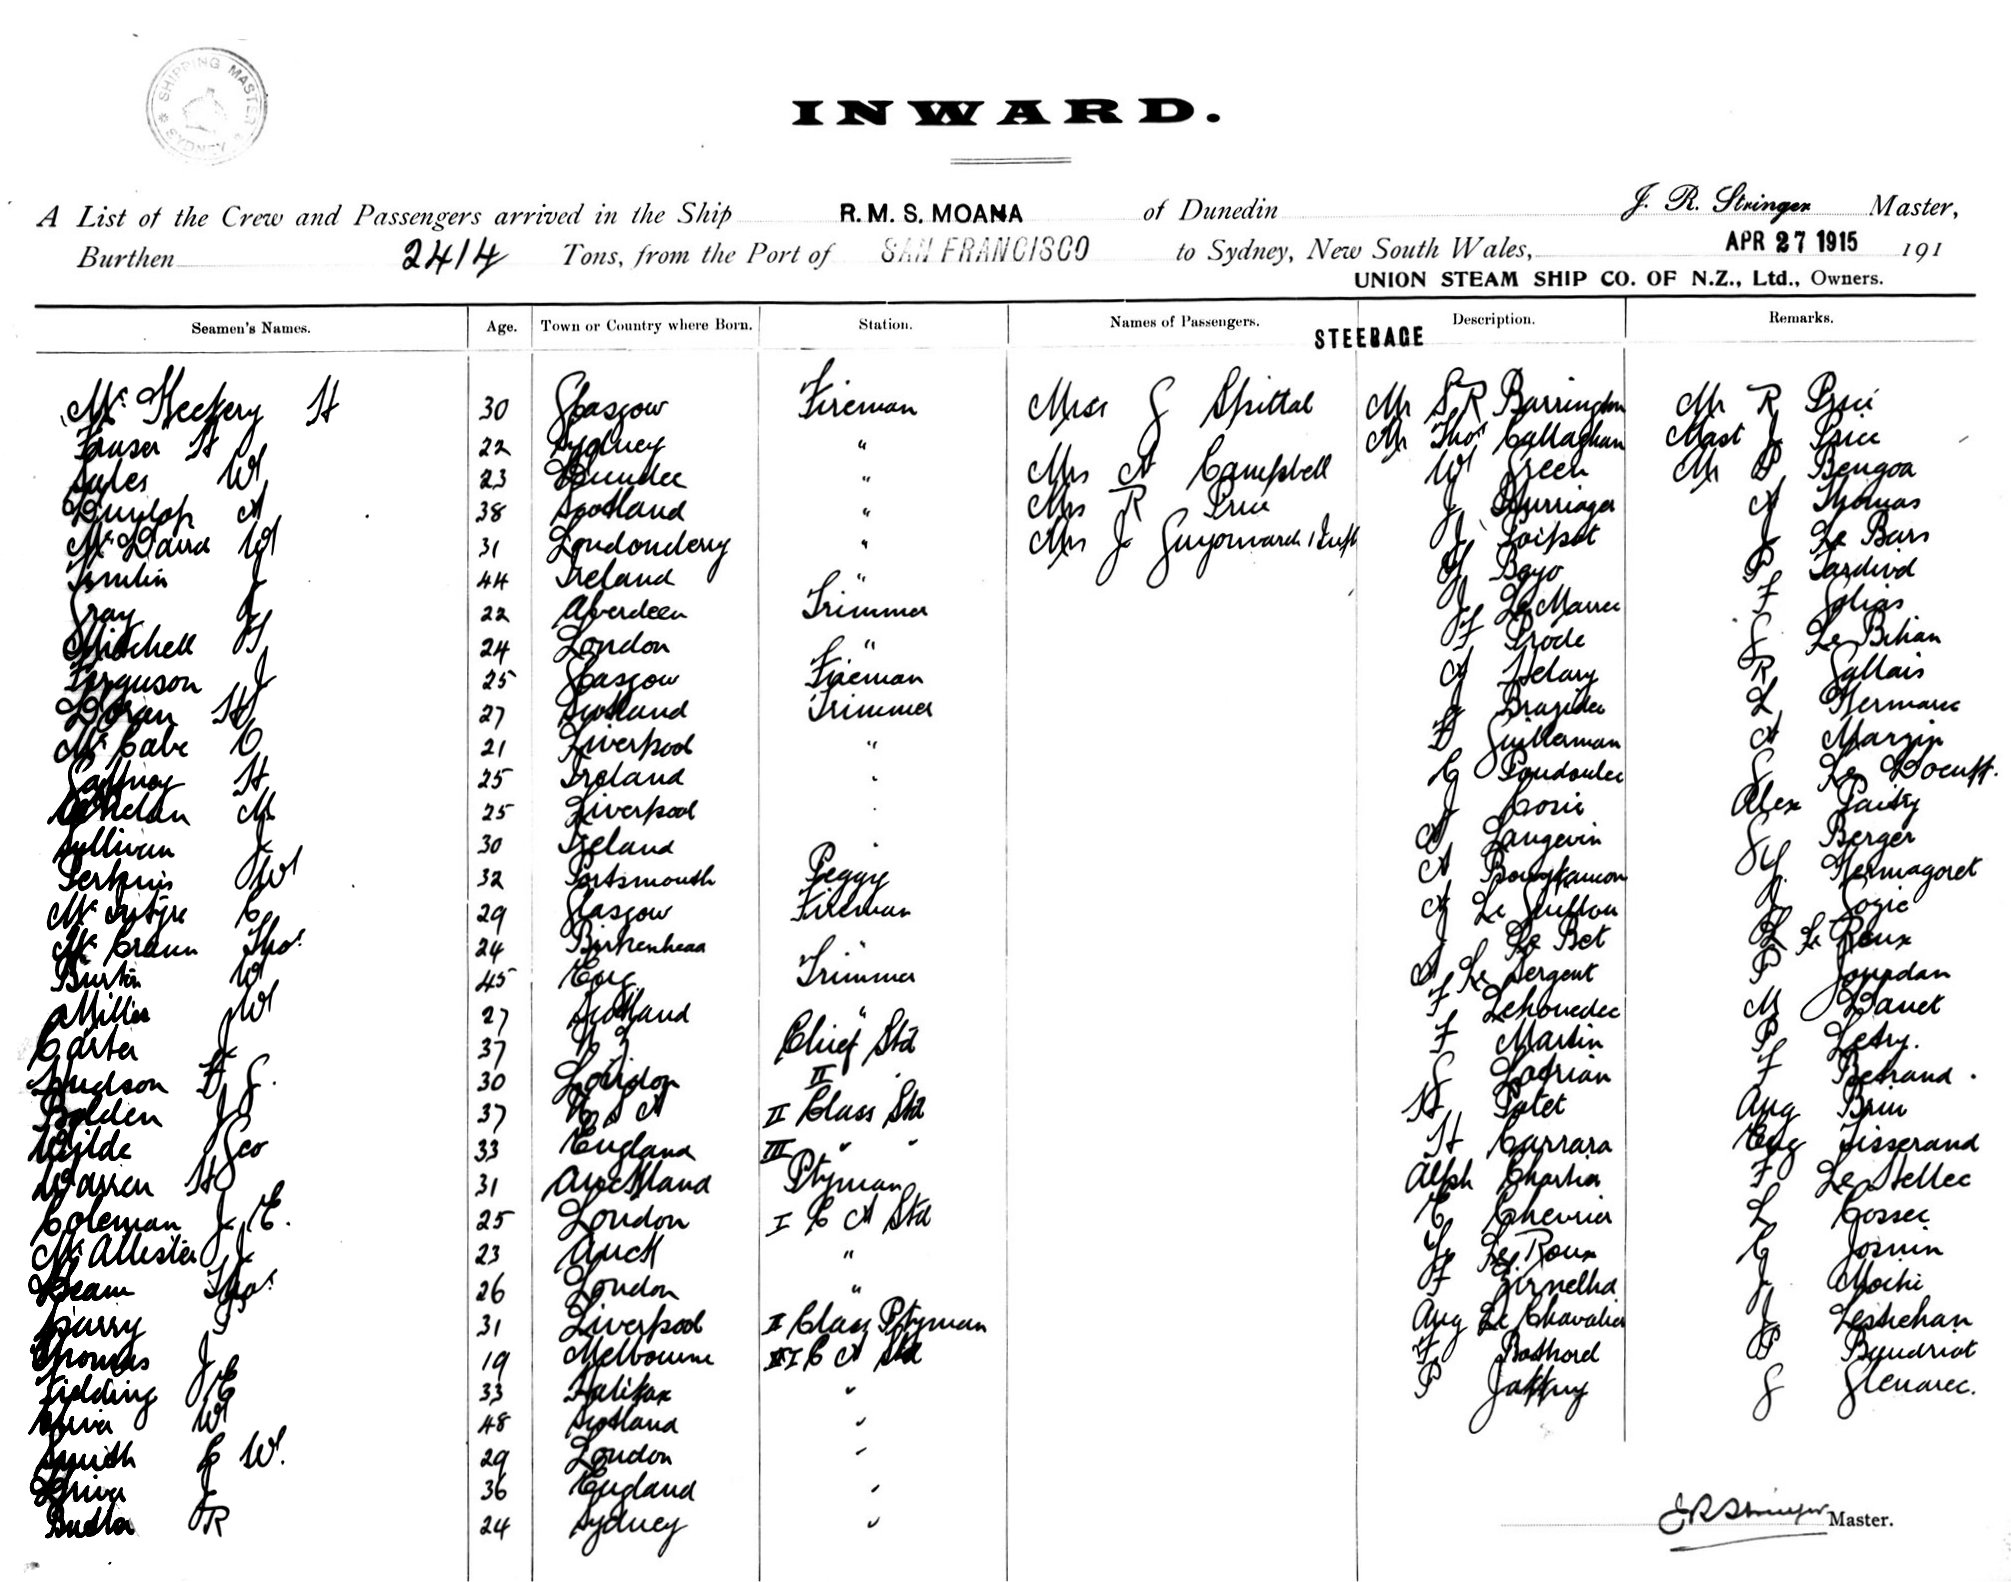 SHIPPING MASTER
SYDNEY
INWARD.
A List of the Crew and Passengers arrived in the Ship R. M. S. MOANA of Dunedin J. R. Stringer Master,
Burthen 2414 Tons, from the Port of SAN FRANCISCO to Sydney, New South Wales, APR 27 1915 191
UNION STEAM SHIP CO. OF N.Z., Ltd., Owners.
Seamen's Names. Age. Town or Country where Born. Station. Names of Passengers. Description. Remarks.
STEERAGE
30 Glasgow Fireman Miss G Spittal Mr S R Barrington Mr R Price
Fraser H 22 Sydney " Mr Thos Callaghan Mast J Price
W 23 Dundee " Mrs A Campbell W Green Mr P Bengoa
Dunlop A 38 Scotland " Mrs R Price J A Thomas
McDaid W 31 Londonderry " Mrs J Guyomarch 1 Inft J Loipot J Le Bars
J 44 Ireland " Bozo P Tardivel
Gray J 22 Aberdeen Trimmer J Le Marrec F Golias
Mitchell 24 London " F Prode G Le Bihan
Ferguson J 25 Glasgow Fireman A Helary R Gallais
Doran H 27 Scotland Trimmer J L Kermarec
McCabe C 21 Liverpool " F Guillerman A Margin
Gaffney H 25 Ireland C Poudoulec G Le Boeuff.
Whelan M 25 Liverpool J Cosic Alex
Sullivan J 30 Ireland A Langevin G Berger
Perkins W 32 Portsmouth Peggy A Kermagoret
McIntyre C 29 Glasgow Fireman A Le Guillou J Gozic
McCrann Thos. 24 Birkenhead " J Le Bet L Le Roux
Burton W 45 Eng. Trimmer A Le Sergent P Jourdan
Miller W 27 Scotland " F Lehouedec M Danet
Carter J 37 N Z Chief Std F Martin P Letry.
Hudson F G. 30 London II G Lotrian F Betrand.
Bolden J 37 U S A II Class Std H Patet Aug Brin
Wilde Geo 33 England III " " H Carrara Eug Tisserand
Warren H 31 Auckland Ptyman Alph Chartier F Le Stellec
Coleman J E. 25 London I C A Std E Chevrier L Cossec
McAllister J 23 Auck " Y Le Roux C Josnin
Deam Thos. 26 London " F J
P 31 Liverpool II Class Ptyman Aug Le Chavalier J Lestrehan
Thomas J 19 Melbourne III C A Std F Bothord P Baudriot
Fielding E 33 Halifax " P Jaffrey G Glenarec.
W 48 Scotland "
Smith C W. 29 London "
J 36 England "
Butler R 24 Sydney "
J R Stringer Master.